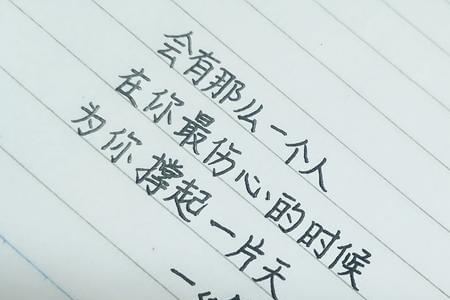 会有那么一个人
在你最伤心的时候
为你撑起一片天
一